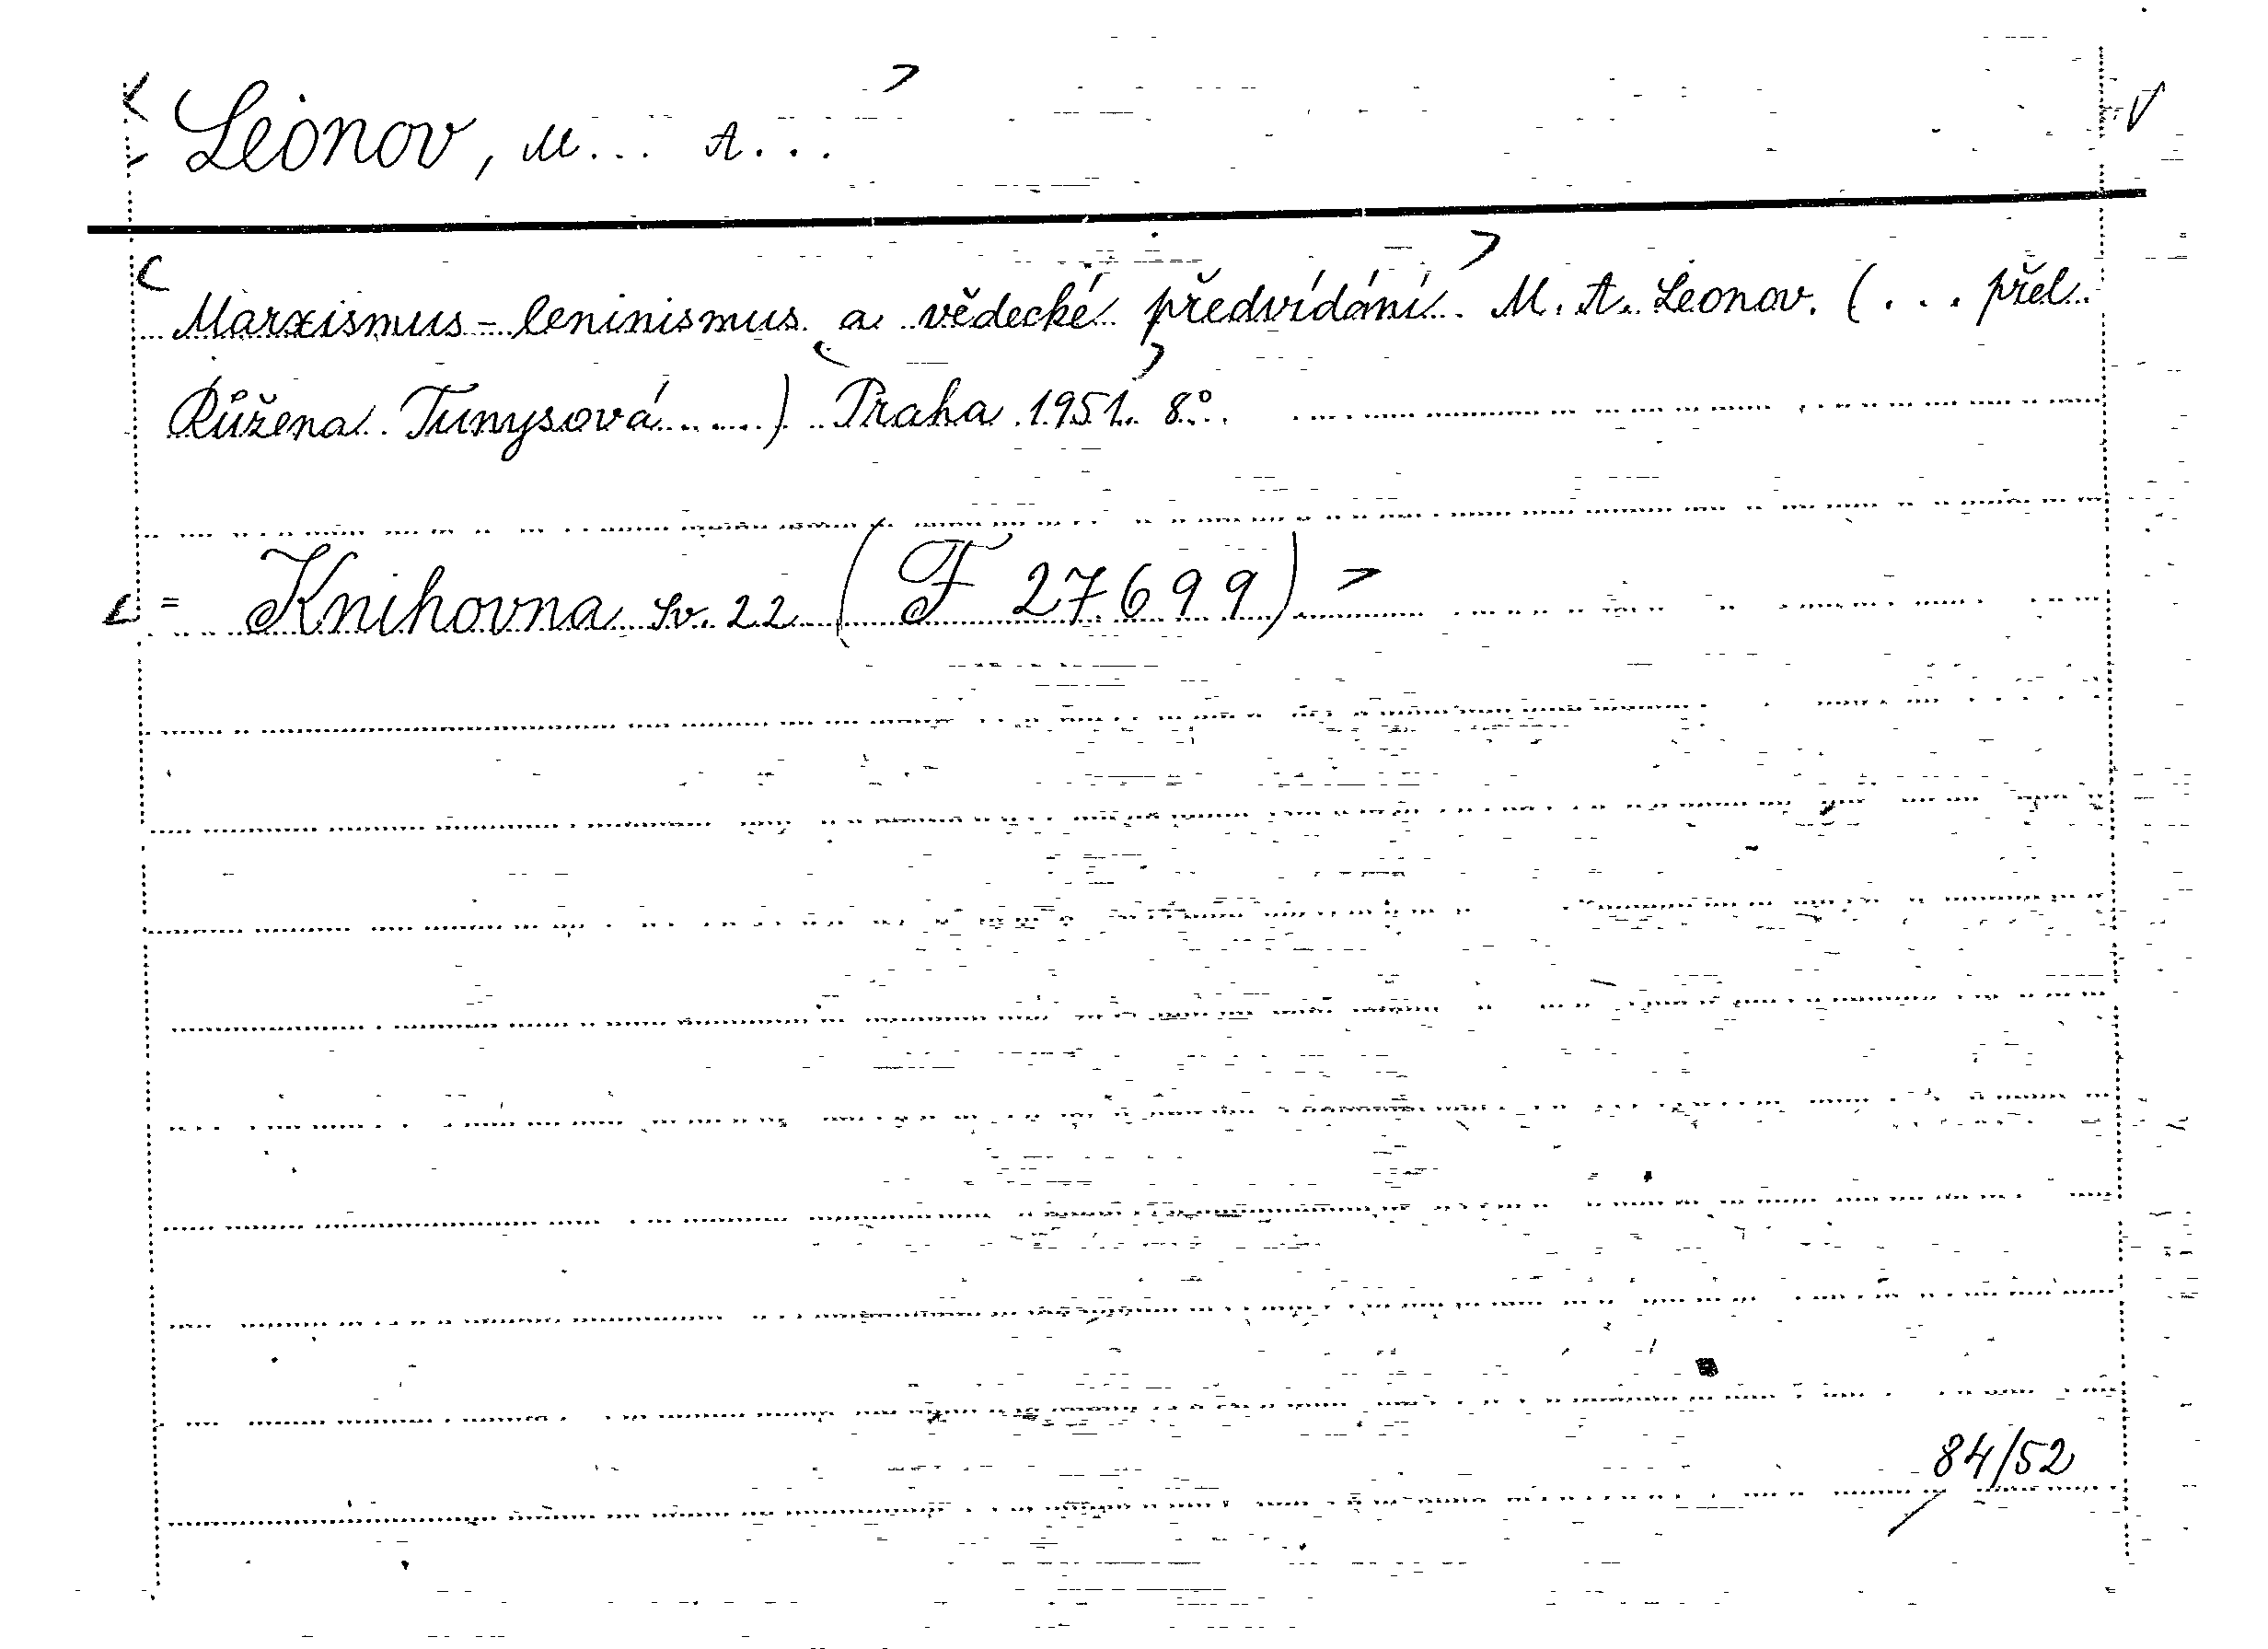 Leonov, M... A...
Marxismus-leninismus a vědecké předvídání. M. A. Leonov. (... přel.
Růžena Tunysová.....) Praha 1951. 8°.
= Knihovna sv. 22 (F 27699)
84/52